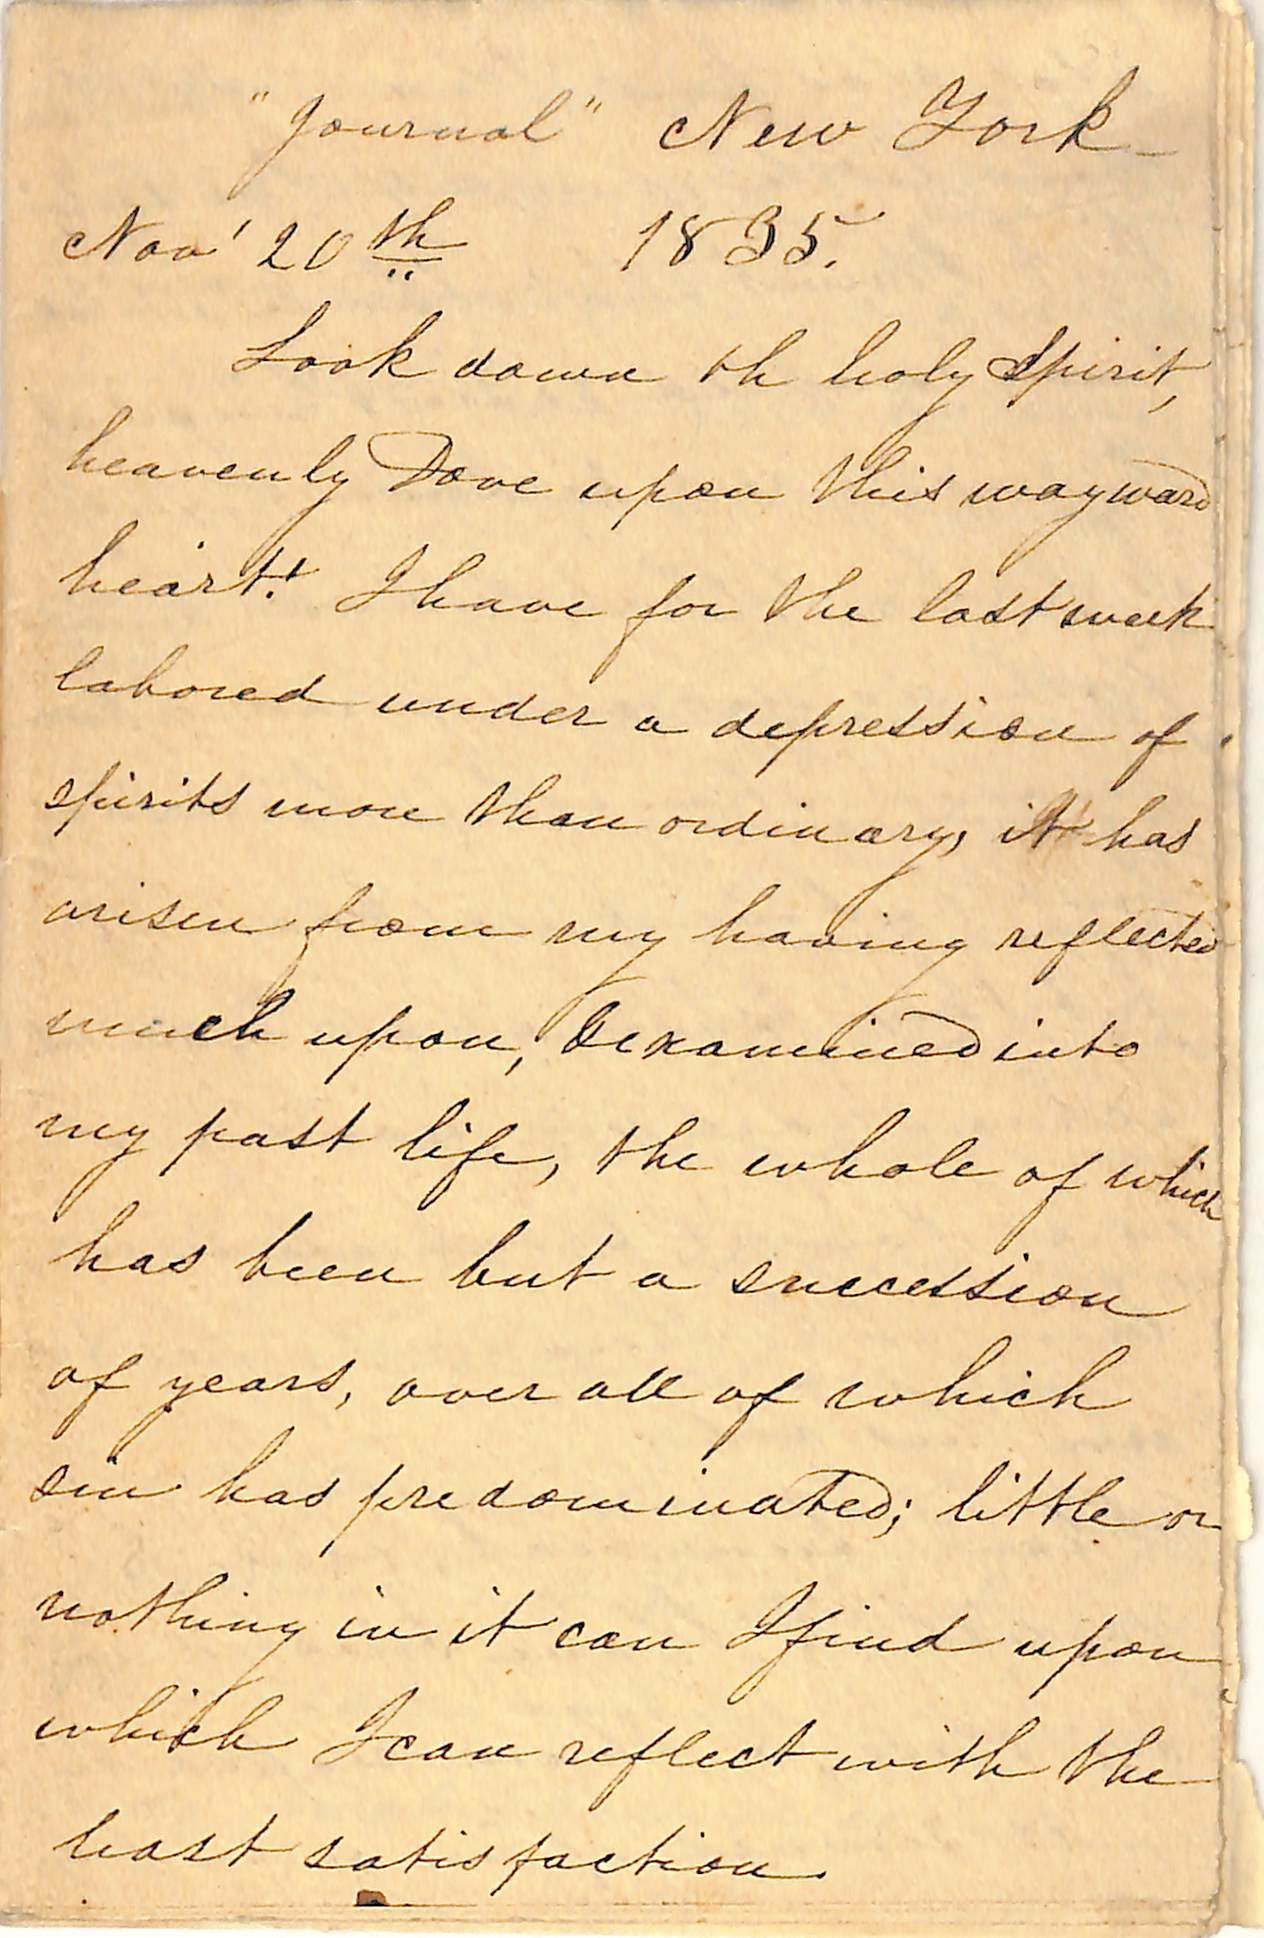 "Journal" New York
Nov' 20th 1835.
Look down th holy Spirit,
heavenly Dove upon this wayward
heart! I have for the last week
labored under a depression of
spirits more than ordinary, it has
arisen from my having reflected
much upon, & examined into
my past life, the whole of which
has been but a succession
of years, over all of which
sin has predominated; little or
nothing in it can I find upon
which I can reflect with the
least satisfaction.